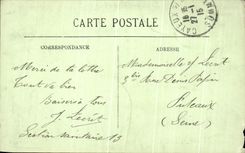 CARTE POSTALE
CORRESPONDANCE
ADRESSE
Merci de ta lettre
Tout va bien
Baisers à tous
J. Lecrit
Section sanitaire 13
Mademoiselle J. Lecrit
3 bis Rue Denis Papin
Puteaux
(Seine)